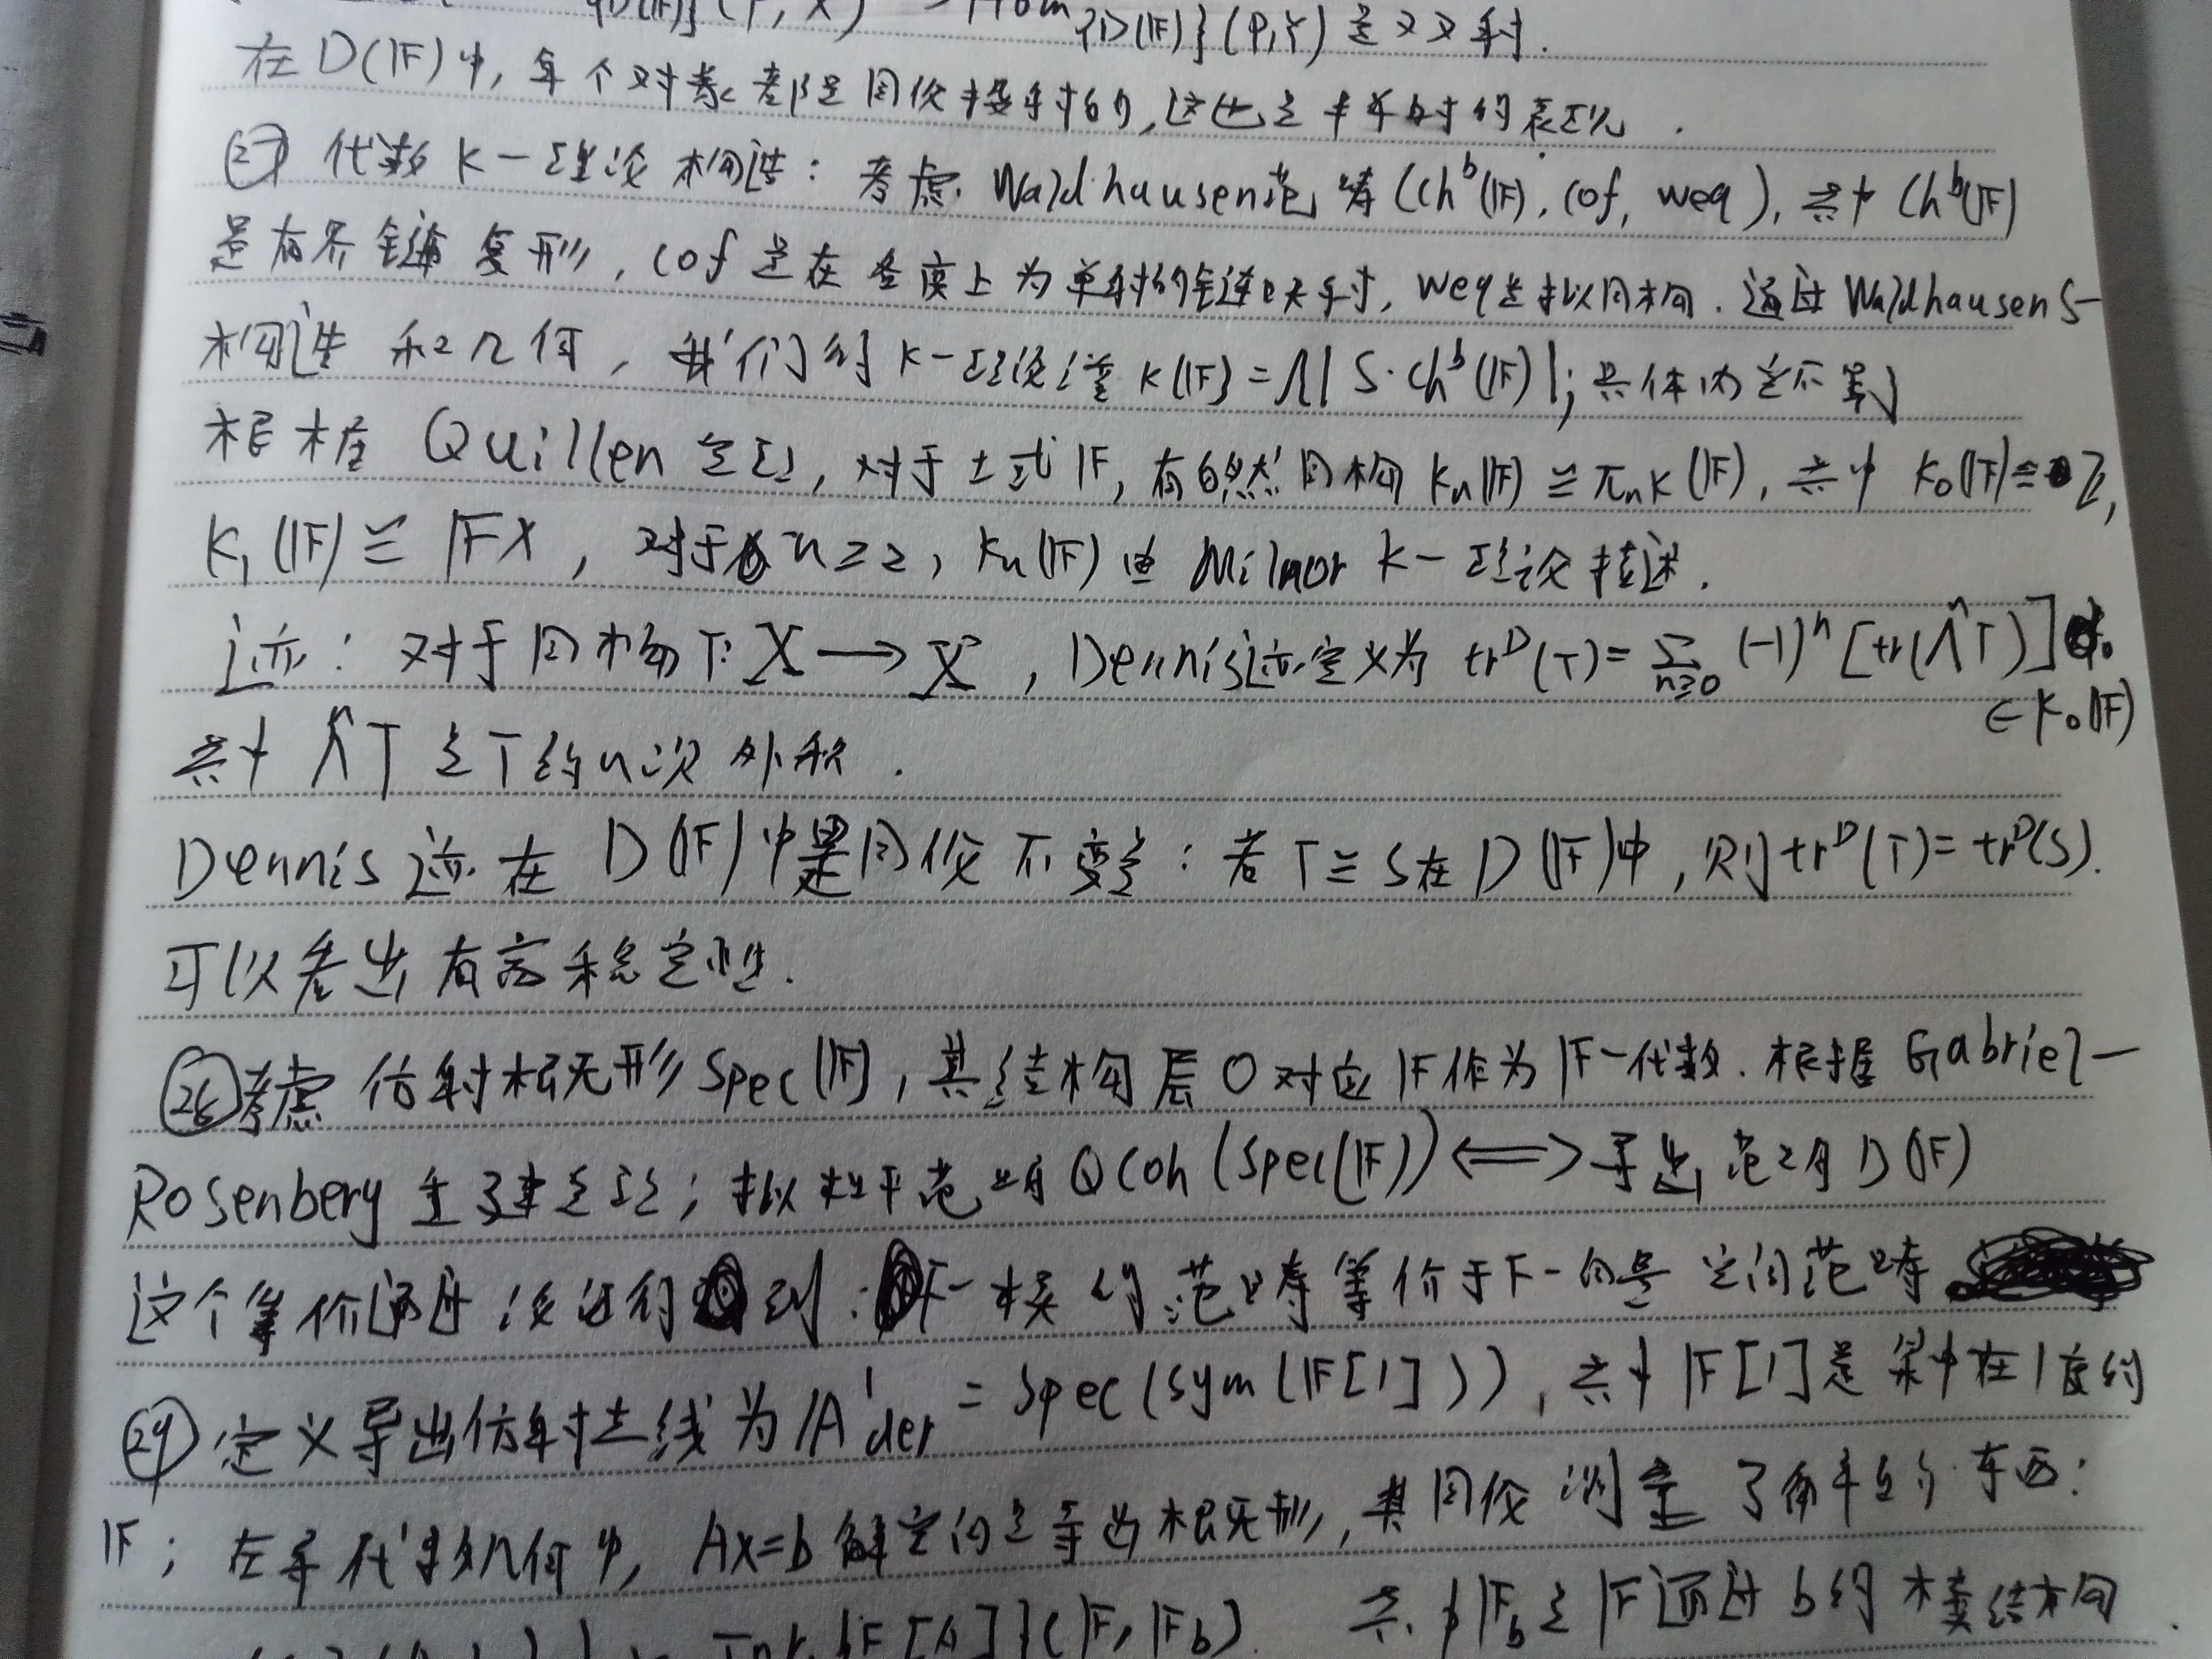 {D(𝔽)}(P,X) → Hom_{D(𝔽)}(P,Y) 是双射.
在D(𝔽)中,每个对象都是同伦投射的,这也是半单时的表现.
㉗ 代数K-理论构造:考虑Waldhausen范畴(Ch^b(𝔽), cof, weq),其中Ch^b(𝔽)
是有界链复形,cof是在各度上为单射的链映射,weq是拟同构.通过Waldhausen S-
构造和几何,我们的K-理论谱K(𝔽)=Ω|S·Ch^b(𝔽)|;具体内定不写
根据Quillen定理,对于域𝔽,有自然同构K_n(𝔽)≅π_nK(𝔽),其中K_0(𝔽)≅ℤ,
K_1(𝔽)≅𝔽×,对于n≥2,K_n(𝔽)由Milnor K-理论描述.
迹:对于同构T:X→X,Dennis迹定义为tr^D(T)=Σ_{n≥0}(-1)^n[tr(Λ^nT)]
∈K_0(𝔽)
其中Λ^nT是T的n次外积.
Dennis迹在D(𝔽)中是同伦不变是:若T≅S在D(𝔽)中,则tr^D(T)=tr^D(S).
可以看出有高稳定性.
㉘考虑仿射概形Spec(𝔽),其结构层O对应𝔽作为𝔽-代数.根据Gabriel-
Rosenberg重建定理;拟凝聚范畴QCoh(Spec(𝔽))⟺导出范畴D(𝔽)
这个等价通过 得到:F-模的范畴等价于F-向量空间范畴
㉙定义导出仿射直线为𝔸^1_der=Spec(Sym(𝔽[1])),其中𝔽[1]是集中在1度的
𝔽;在导代数几何中,Ax=b解空间是导出概形,其同伦测量了 的东西:
{𝔽[A]}(𝔽,𝔽_b). 其中𝔽_b是𝔽通过b的模结构.